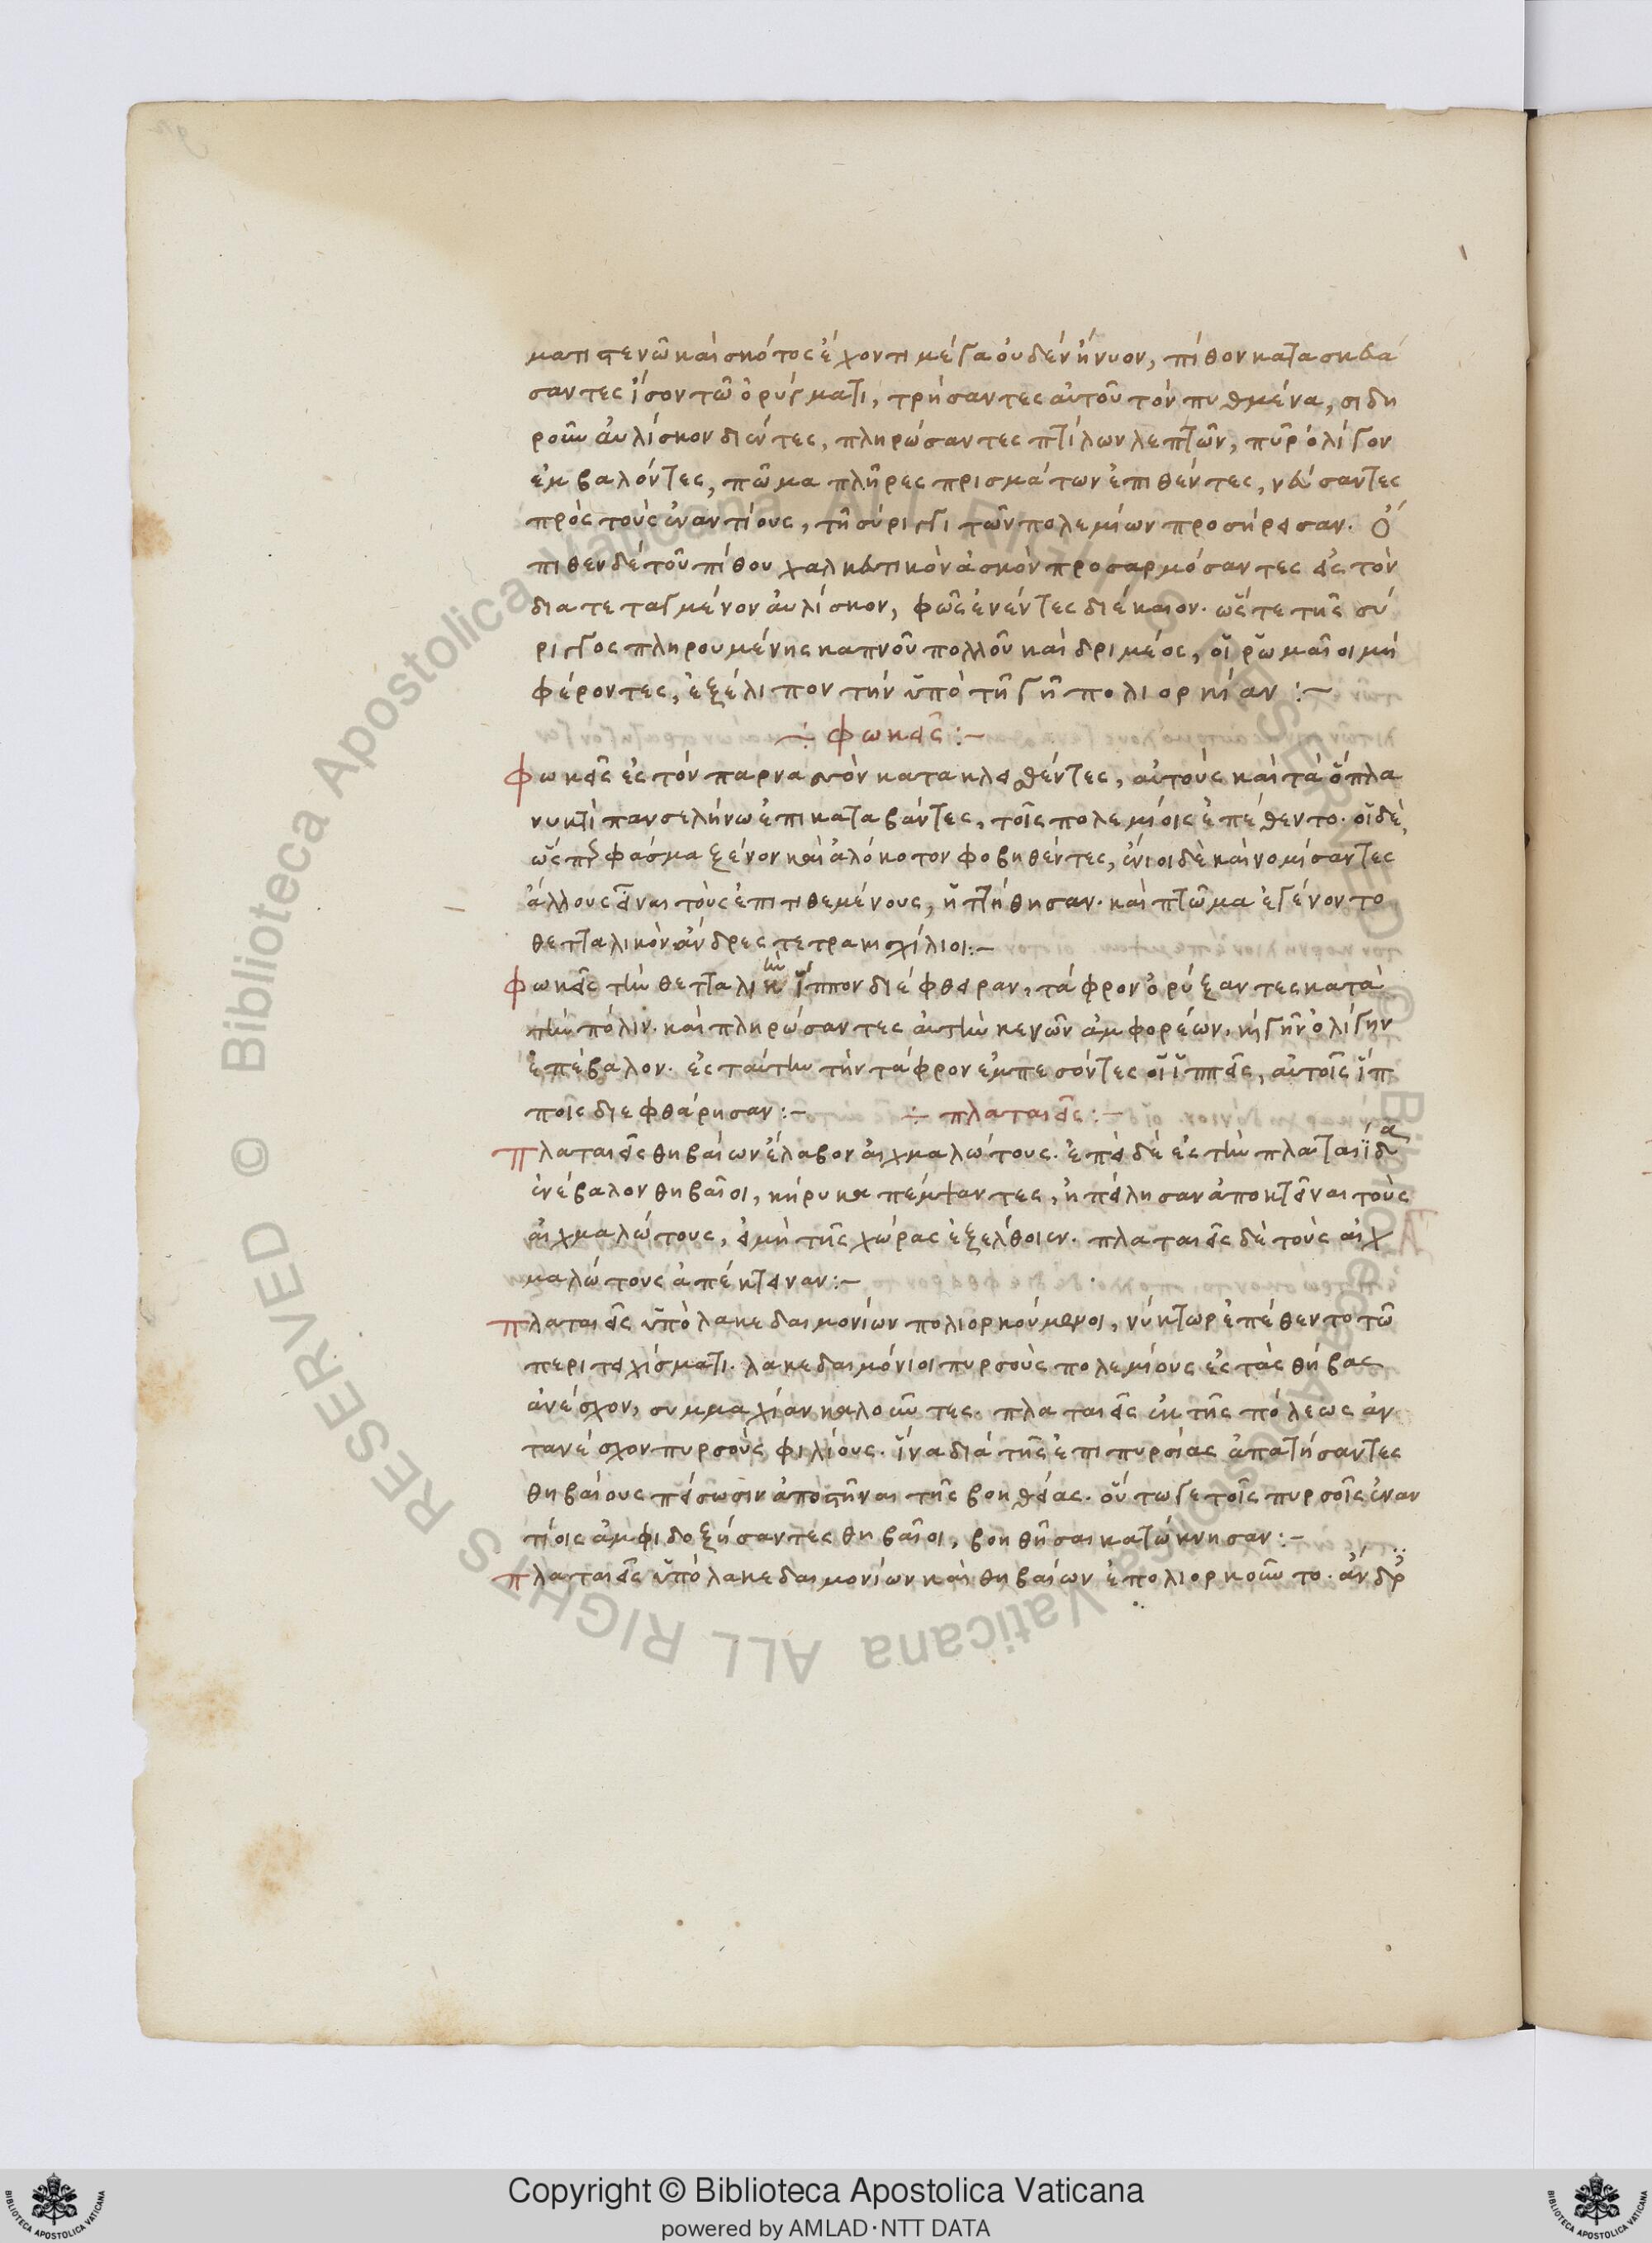 ματι στενῶ καὶ σκότος ἔχοντι μέγα οὐδὲν ἤνυον, πίθον κατασκευά
σαντες ἴσον τῶ ὀρύγματι, τρήσαντες αὐτοῦ τὸν πυθμένα, σιδη
ροῦν αὐλίσκον διέντες, πληρώσαντες πτίλων λεπτῶν, πῦρ ὀλίγον
ἐμβαλόντες, πῶμα πλῆρες πρισμάτων ἐπιθέντες, νεύσαντες
πρὸς τοὺς ἐναντίους, τῆ σύριγγι τῶν πολεμίων προσήρεισαν. ὄ
πιθεν δὲ τοῦ πίθου χαλκευτικὸν ἀσκὸν προσαρμόσαντες εἰς τὸν
διατεταγμένον αὐλίσκον, φῶς ἐνέντες διέκαιον. ὥστε τῆς σύ
ριγγος πληρουμένης καπνοῦ πολλοῦ καὶ δριμέος, οἱ ῥωμαῖοι μὴ
φέροντες, ἐξέλιπον τὴν ὑπὸ τῆ γῆ πολιορκίαν :~
÷ φωκεῖς :~
Φωκεῖς ἐς τὸν παρνασὸν κατακλεισθέντες, αὐτοὺς καὶ τὰ ὅπλα
νυκτὶ πανσελήνω ἐπικαταβάντες, τοῖς πολεμίοις ἐπέθεντο. οἱ δὲ,
ὥσπερ φάσμα ξένον καὶ ἀλόκοτον φοβηθέντες, ἔνιοι δὲ καὶ νομίσαντες
ἄλλους εἶναι τοὺς ἐπιτιθεμένους, ἡττήθησαν. καὶ πτῶμα ἐγένοντο
θετταλικὸν ἄνδρες τετρακισχίλιοι :~
Φωκεῖς τὴν θετταλικὴν ἵππον διέφθειραν, τάφρον ὀρύξαντες κατὰ
τὴν πόλιν. καὶ πληρώσαντες αὐτὴν κενῶν ἀμφορέων, κὴ γῆν ὀλίγην
ἐπέβαλον. ἐς ταύτην τὴν τάφρον ἐμπεσόντες οἱ ἱππεῖς, αὐτοῖς ἵπ
ποις διεφθάρησαν :~ ÷ πλαταιεῖς :~
Πλαταιεῖς θηβαίων ἔλαβον αἰχμαλώτους. ἐπεὶ δὲ ἐς τὴν πλαταιΐδα
ἐνέβαλον θηβαῖοι, κήρυκα πέμψαντες, ἠπείλησαν ἀποκτεῖναι τοὺς
αἰχμαλώτους, εἰ μὴ τῆς χώρας ἐξέλθοιεν. πλαταιεῖς δὲ τοὺς αἰχ
μαλώτους ἀπέκτειναν :~
Πλαταιεῖς ὑπὸ λακεδαιμονίων πολιορκούμενοι, νύκτωρ ἐπέθεντο τῶ
περιτειχίσματι. λακεδαιμόνιοι πυρσοὺς πολεμίους ἐς τὰς θήβας
ἀνέσχον, συμμαχίαν καλοῦντες. πλαταιεῖς ἐκ τῆς πόλεως ἀν
τανέσχον πυρσοὺς φιλίους. ἵνα διὰ τῆς ἐπιπυρσίας ἀπατήσαντες
θηβαίους πείσωσιν ἀποστῆναι τῆς βοηθείας. οὕτω γε τοῖς πυρσοῖς ἐναν
τίοις ἀμφιδοξήσαντες θηβαῖοι, βοηθῆσαι κατώκνησαν :~
Πλαταιεῖς ὑπὸ λακεδαιμονίων καὶ θηβαίων ἐπολιορκοῦντο. ἄνδρ